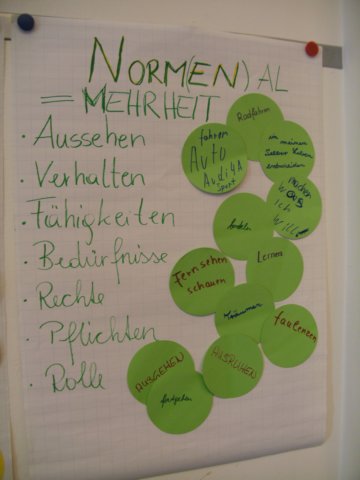 NORM(EN)AL
= MEHRHEIT
· Aussehen
· Verhalten
· Fähigkeiten
· Bedürfnisse
· Rechte
· Pflichten
· Rolle
Radfahren
fahren
Auto
Audi 4A
Sport
in meinem
Leben
entscheiden
machen
WAS
ich
Will
Lernen
Fernsehen
schauen
Träumen
faulenzen
AUSGEHEN
AUSRUHEN